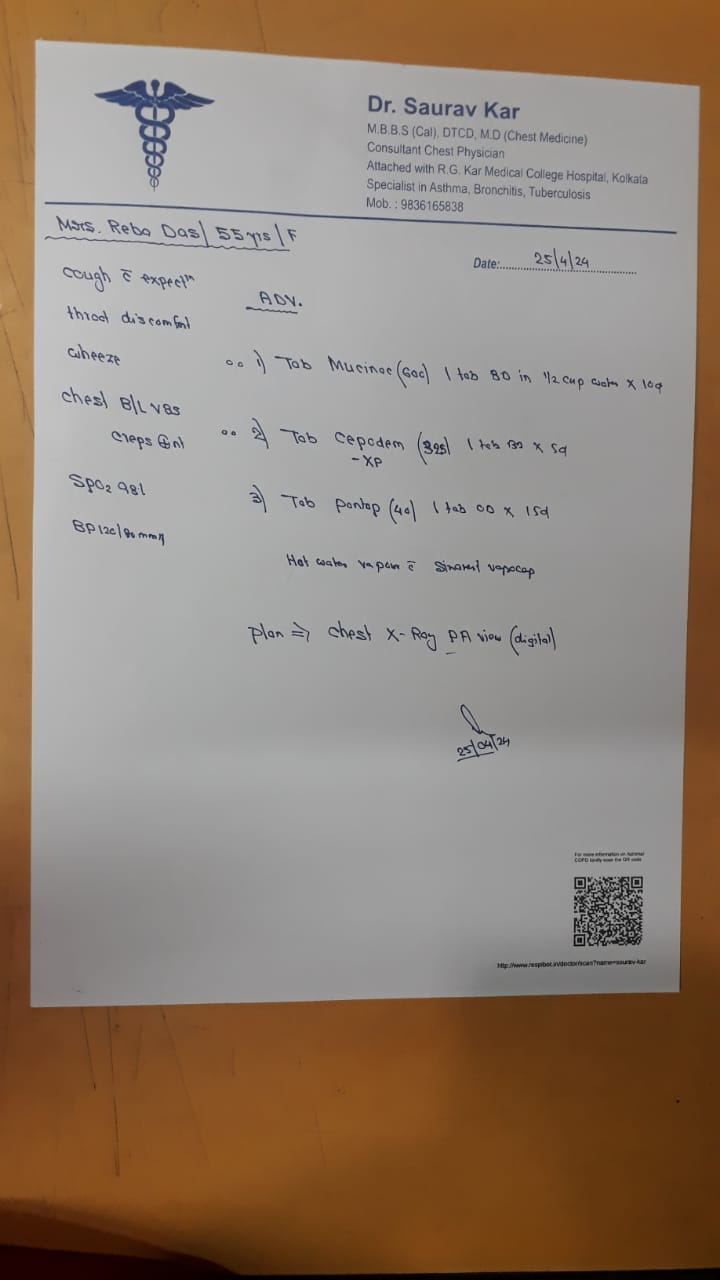 Dr. Saurav Kar
M.B.B.S (Cal), DTCD, M.D (Chest Medicine)
Consultant Chest Physician
Attached with R.G. Kar Medical College Hospital, Kolkata
Specialist in Asthma, Bronchitis, Tuberculosis
Mob. : 9836165838
Mrs. Reba Das | 55 yrs | F
Date: 25/4/24
cough c̄ expectⁿ
throat discomfort
wheeze
chest B/L VBS
creps
SpO2 98%
BP 120/80 mmHg
ADV.
1) Tab Mucinac (600) 1 tab BD in 1/2 cup water x 10d
2) Tab Cepodem (325) 1 tab BD x 5d
-XP
3) Tab Pantop (40) 1 tab OD x 15d
Hot water vapour c̄ Sinarest vapocap
Plan ⇒ Chest X-Ray PA view (digital)
25/04/24
For more information on Asthma/
COPD kindly scan the QR code
http://www.respibot.in/doctor/scan?name=saurav-kar